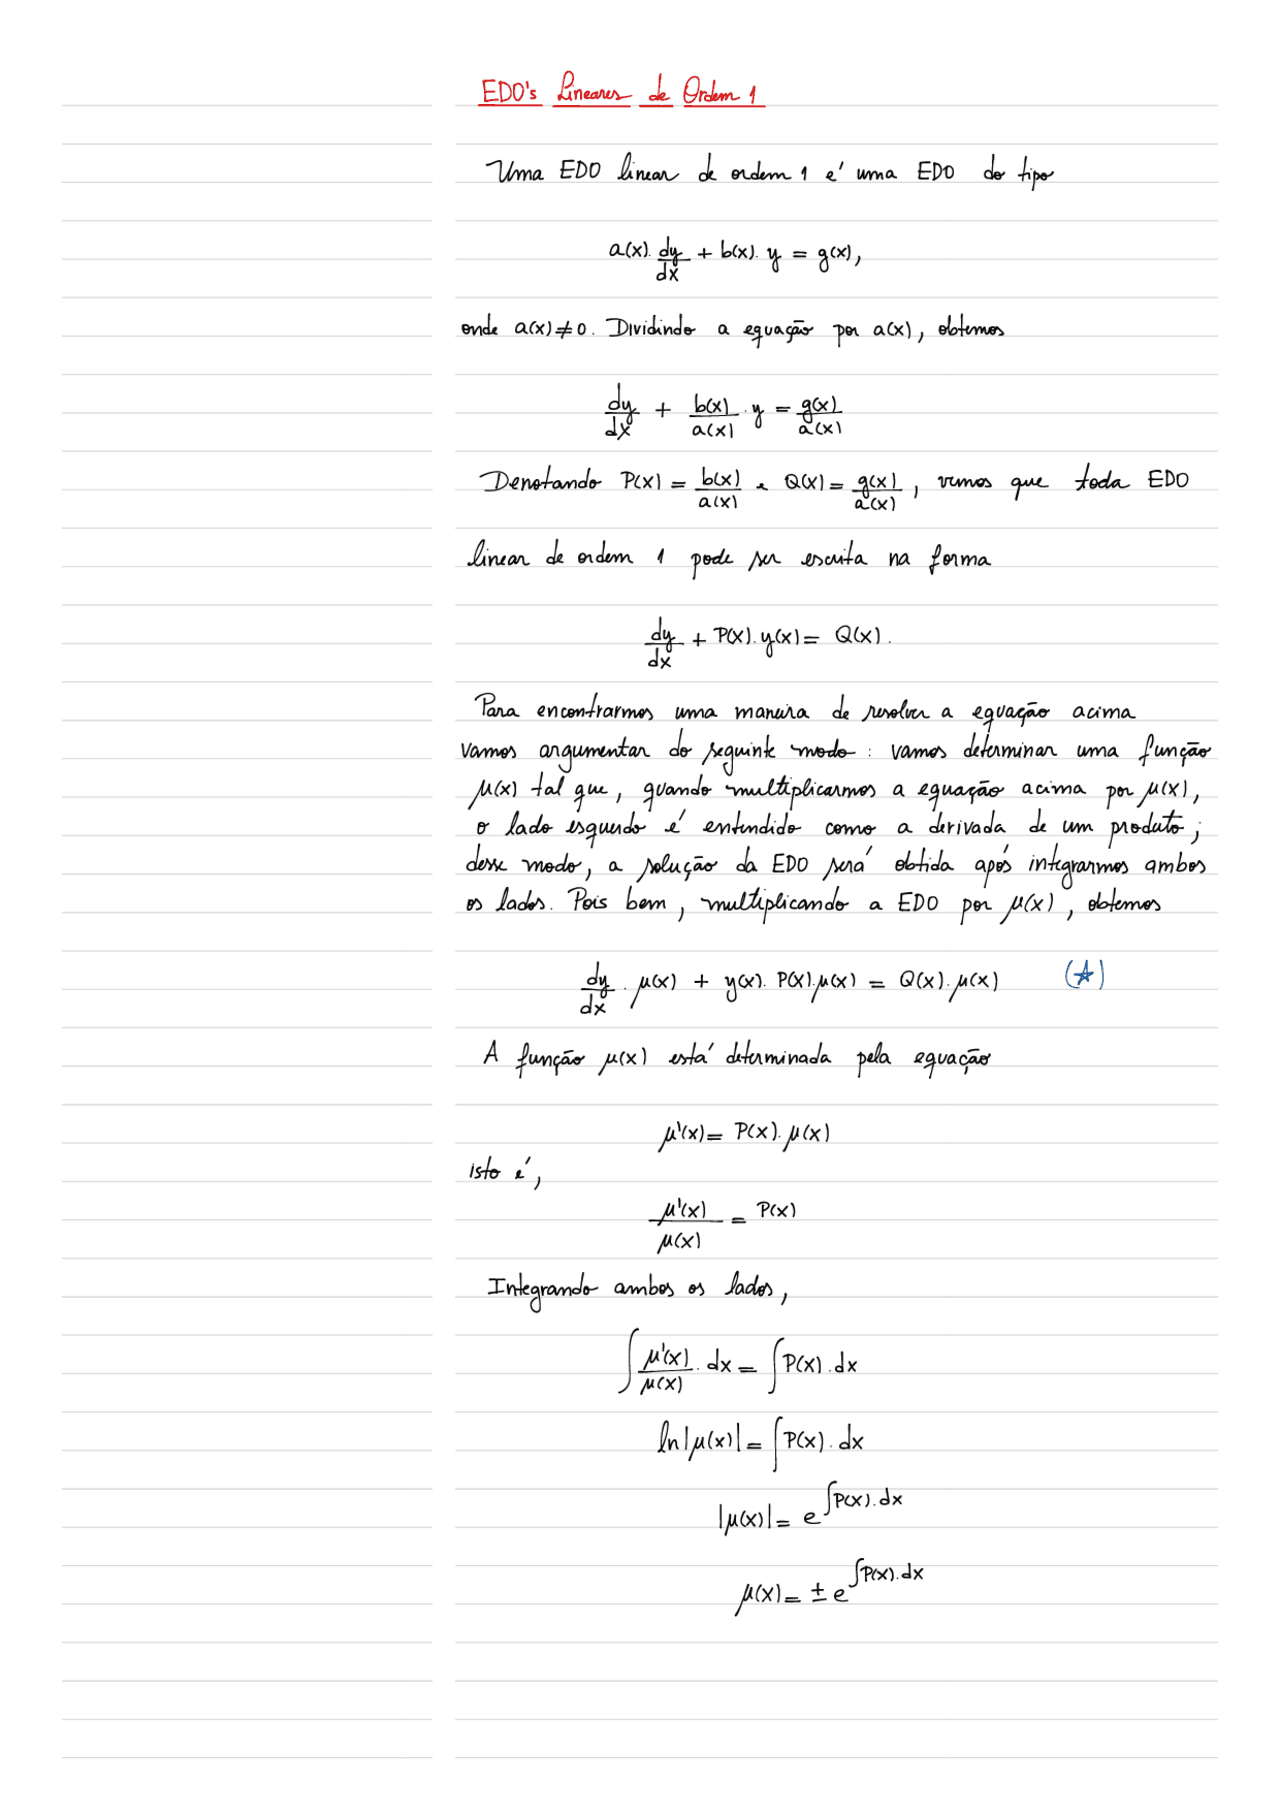 EDO's Lineares de Ordem 1
Uma EDO linear de ordem 1 é uma EDO do tipo
a(x). dy/dx + b(x). y = g(x),
onde a(x) ≠ 0. Dividindo a equação por a(x), obtemos
dy/dx + b(x)/a(x) . y = g(x)/a(x)
Denotando P(x) = b(x)/a(x) e Q(x) = g(x)/a(x), vemos que toda EDO
linear de ordem 1 pode ser escrita na forma
dy/dx + P(x). y(x) = Q(x).
Para encontrarmos uma maneira de resolver a equação acima
vamos argumentar do seguinte modo: vamos determinar uma função
μ(x) tal que, quando multiplicarmos a equação acima por μ(x),
o lado esquerdo é entendido como a derivada de um produto;
desse modo, a solução da EDO será obtida após integrarmos ambos
os lados. Pois bem, multiplicando a EDO por μ(x), obtemos
dy/dx . μ(x) + y(x). P(x). μ(x) = Q(x). μ(x) (☆)
A função μ(x) está determinada pela equação
μ'(x) = P(x). μ(x)
isto é,
μ'(x)/μ(x) = P(x)
Integrando ambos os lados,
∫ μ'(x)/μ(x) . dx = ∫ P(x). dx
ln|μ(x)| = ∫ P(x). dx
|μ(x)| = e^{∫P(x).dx}
μ(x) = ± e^{∫P(x).dx}